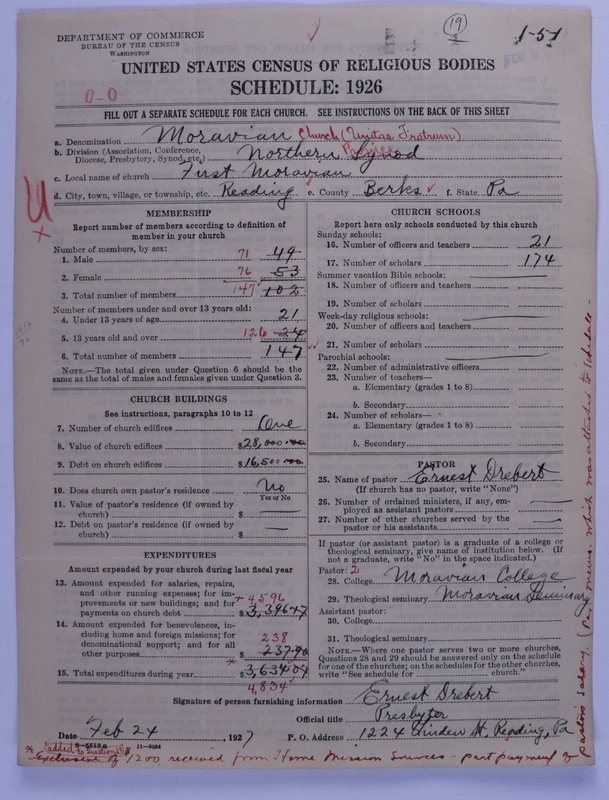 (19)
1-51
DEPARTMENT OF COMMERCE
BUREAU OF THE CENSUS
WASHINGTON
UNITED STATES CENSUS OF RELIGIOUS BODIES
SCHEDULE: 1926
0-0
FILL OUT A SEPARATE SCHEDULE FOR EACH CHURCH. SEE INSTRUCTIONS ON THE BACK OF THIS SHEET
a. Denomination Moravian Church (Unitas Fratrum)
b. Division (Association, Conference, Diocese, Presbytery, Synod, etc.) Northern Synod Province
c. Local name of church First Moravian
d. City, town, village, or township, etc. Reading e. County Berks f. State Pa
MEMBERSHIP
Report number of members according to definition of
member in your church
Number of members, by sex:
1. Male 71 49
2. Female 76 53
3. Total number of members 147 102
Number of members under and over 13 years old:
4. Under 13 years of age 21
5. 13 years old and over 126 24
6. Total number of members 147
NOTE.—The total given under Question 6 should be
same as the total of males and females given under Question 3.
CHURCH BUILDINGS
See instructions, paragraphs 10 to 12
7. Number of church edifices One
8. Value of church edifices $28,000.00
9. Debt on church edifices $16,500.00
10. Does church own pastor's residence No
Yes or No
11. Value of pastor's residence (if owned by
church) $ —
12. Debt on pastor's residence (if owned by
church) $ —
EXPENDITURES
Amount expended by your church during last fiscal year
13. Amount expended for salaries, repairs,
and other running expenses; for im-
provements or new buildings; and for
payments on church debt * 4596 $3,396.47
14. Amount expended for benevolences, in-
cluding home and foreign missions; for
denominational support; and for all
other purposes 238 237.90
15. Total expenditures during year * $3,634.04
4,834
CHURCH SCHOOLS
Report here only schools conducted by this church
Sunday schools:
16. Number of officers and teachers 21
17. Number of scholars 174
Summer vacation Bible schools:
18. Number of officers and teachers
19. Number of scholars
Week-day religious schools:
20. Number of officers and teachers
21. Number of scholars
Parochial schools:
22. Number of administrative officers
23. Number of teachers—
a. Elementary (grades 1 to 8)
b. Secondary
24. Number of scholars—
a. Elementary (grades 1 to 8)
b. Secondary
PASTOR
25. Name of pastor Ernest Drebert
(If church has no pastor, write "None")
26. Number of ordained ministers, if any, em-
ployed as assistant pastors —
27. Number of other churches served by the
pastor or his assistants —
If pastor (or assistant pastor) is a graduate of a college or
theological seminary, give name of institution below. (If
not a graduate, write "No" in the space indicated.)
Pastor: 2
28. College Moravian College
29. Theological seminary Moravian Seminary
Assistant pastor:
30. College
31. Theological seminary
NOTE.—Where one pastor serves two or more churches,
Questions 28 and 29 should be answered only on the schedule
for one of the churches; on the schedules for the other churches,
write "See schedule for ____ church."
Signature of person furnishing information Ernest Drebert
Official title Presbyter
Date Feb 24, 1927 P. O. Address 1224 Linden St. Reading, Pa
11-9034
* (added to question 13) Exclusive of 1200 received from Home Mission Sources - part payment of
pastor's salary.